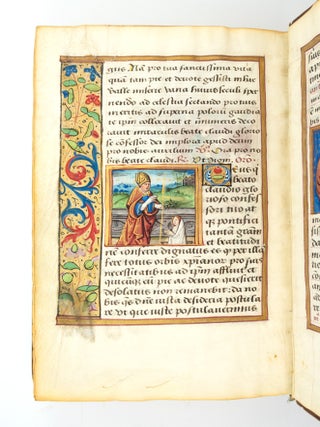 gnis Nam pro tua sanctissima vita
quam tam pie et devote gessisti in huc
valle miserie vana huius seculi sper
nendo ad celestia sectando pro tuis
meritis ad superna polorum gaudia
te ipm collocavit et inimicos deo
beate claudi glorio
se confessor dei implora apud deum
pro nobis auxilium Ora pro no
bis beate claudi R. Ut digni Oro
eus q
beato
claudio glo
rioso confes
sori tuo al
pontifici
tantā gram
et beatitudi
ne conferre dignatus es ut per illa
fere totus orbis xpianor pro suis
necessitatibus ad ipm affluit et
pie ac devote quesierit
desolatus non remanebit da no
bis qs dne iusta desideria postula
re Ut que iuste postulaverimus